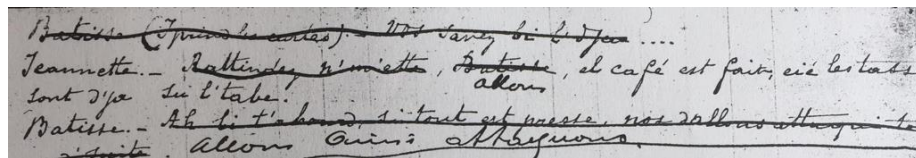 Batisse (I prind les cartes). – Vos savez bi l'djeu ....
Jeannette. – Rattindez n'miette, Batisse, el café est fait, eié les tass
allons
sont d'ja su l'tabe.
Batisse. – Ah bi t'abourd, si tout est presse, nos dallons attaqui
d'suite. Allons attaquons.